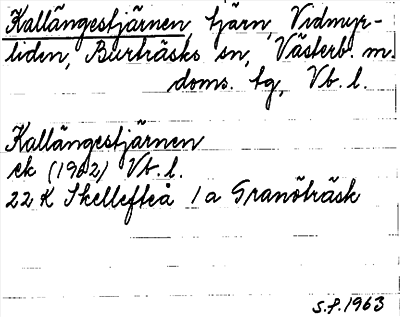 Kallängestjärnen, tjärn, Vidmyr-
liden, Burträsks sn, Västerb. m.
doms. tg, Vb. l.
Kallängestjärnen
ek (1962) Vb. l.
22 K Skellefteå 1a Granöträsk
S.f. 1963